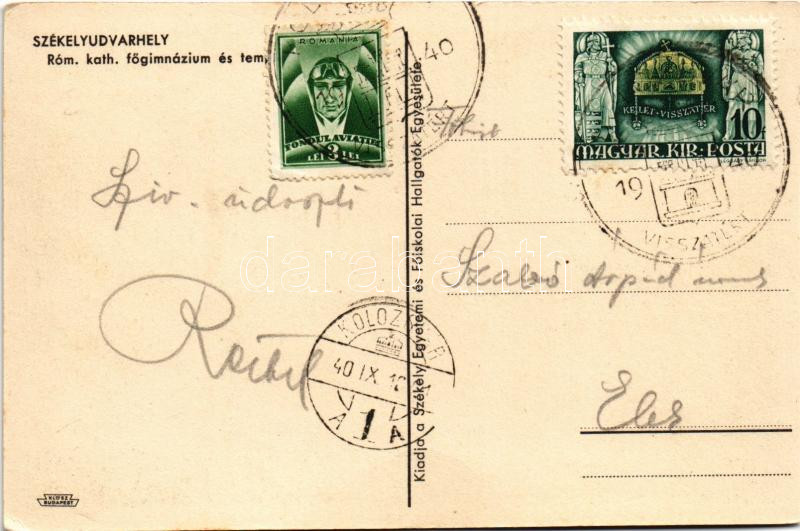 SZÉKELYUDVARHELY
Róm. kath. főgimnázium és tem
ROMANIA
FONDUL AVIATIEI
LEI 3 LEI
40
KELET-VISSZATÉR
10f
MAGYAR KIR. POSTA
19
VISSZATÉRT
Szív. üdvözli
Szabó Árpád
KOLOZSVÁR
40 IX
1
A A
Kiadja a Székely Egyetemi és Főiskolai Hallgatók Egyesülete
darabanth
KLÖSZ
BUDAPEST